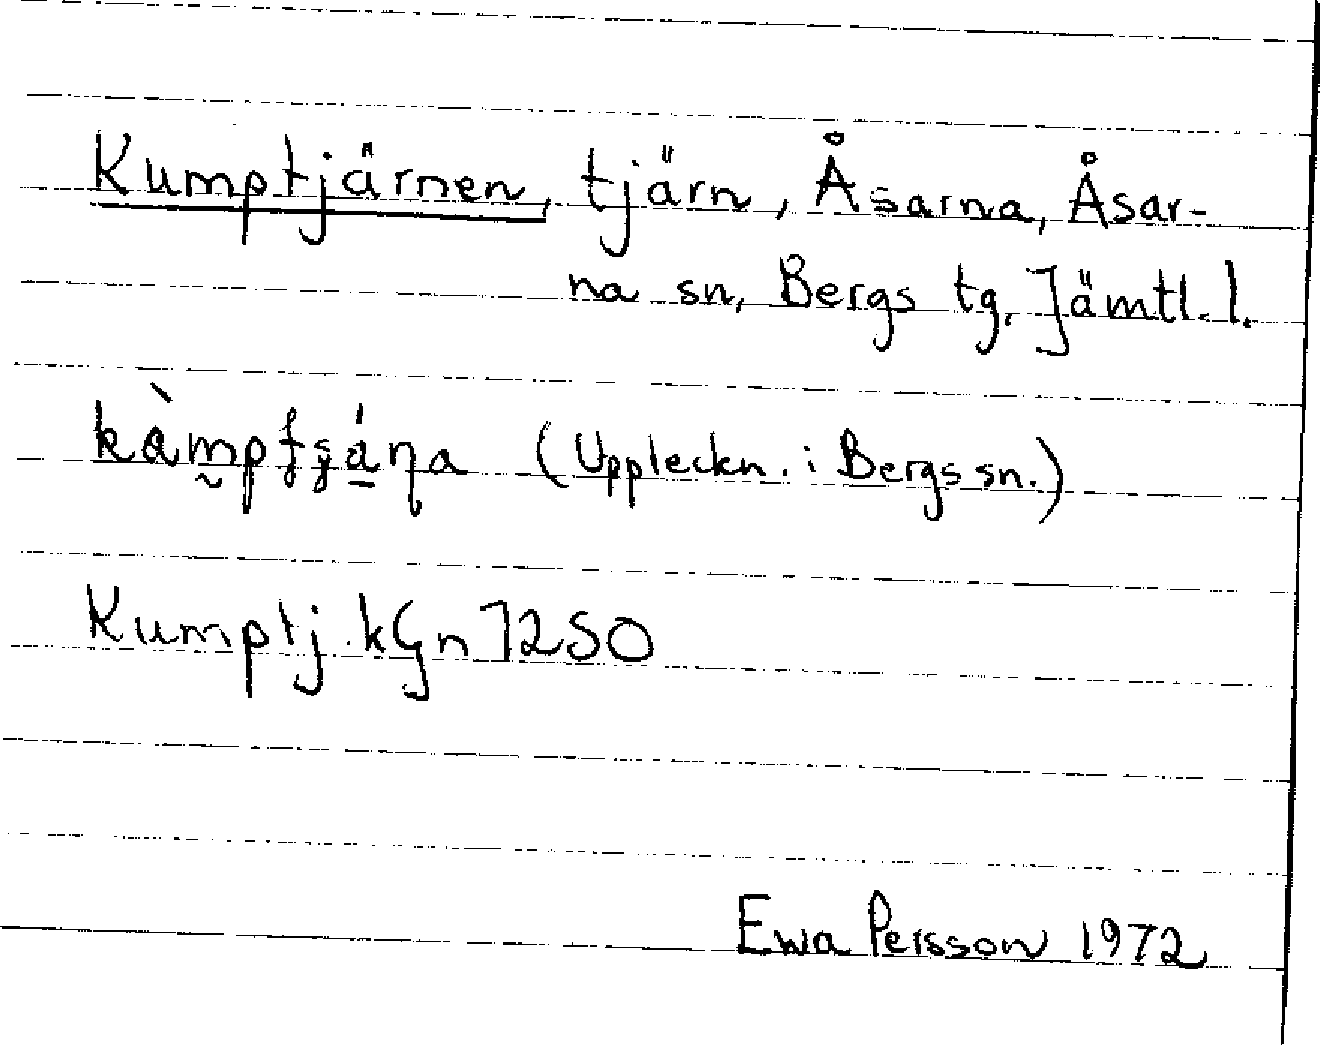 Kumptjärnen, tjärn, Åsarna, Åsar-
na sn, Bergs tg. Jämtl. l.
(Uppteckn. i Bergs sn.)
Kumptj. kGn J250
Ewa Persson 1972